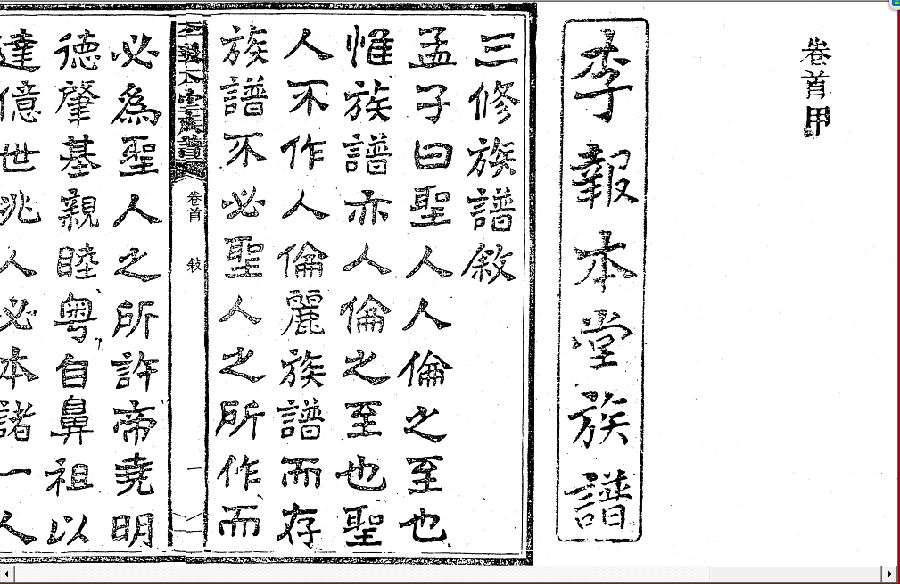 卷首甲
李報本堂族譜
三修族譜敘
孟子曰聖人人倫之至也
惟族譜亦人倫之至也聖
人不作人倫麗族譜而存
族譜不必聖人之所作而
本堂族譜
卷首
敘
一
必為聖人之所許帝堯明
德肇基親睦粵自鼻祖以
達億世兆人必本諸一人